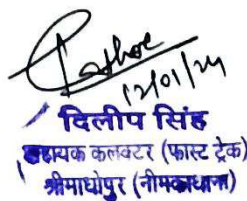 12/01/24
दिलीप सिंह
सहायक कलक्टर (फास्ट ट्रेक)
श्रीमाधोपुर (नीमकाथाना)